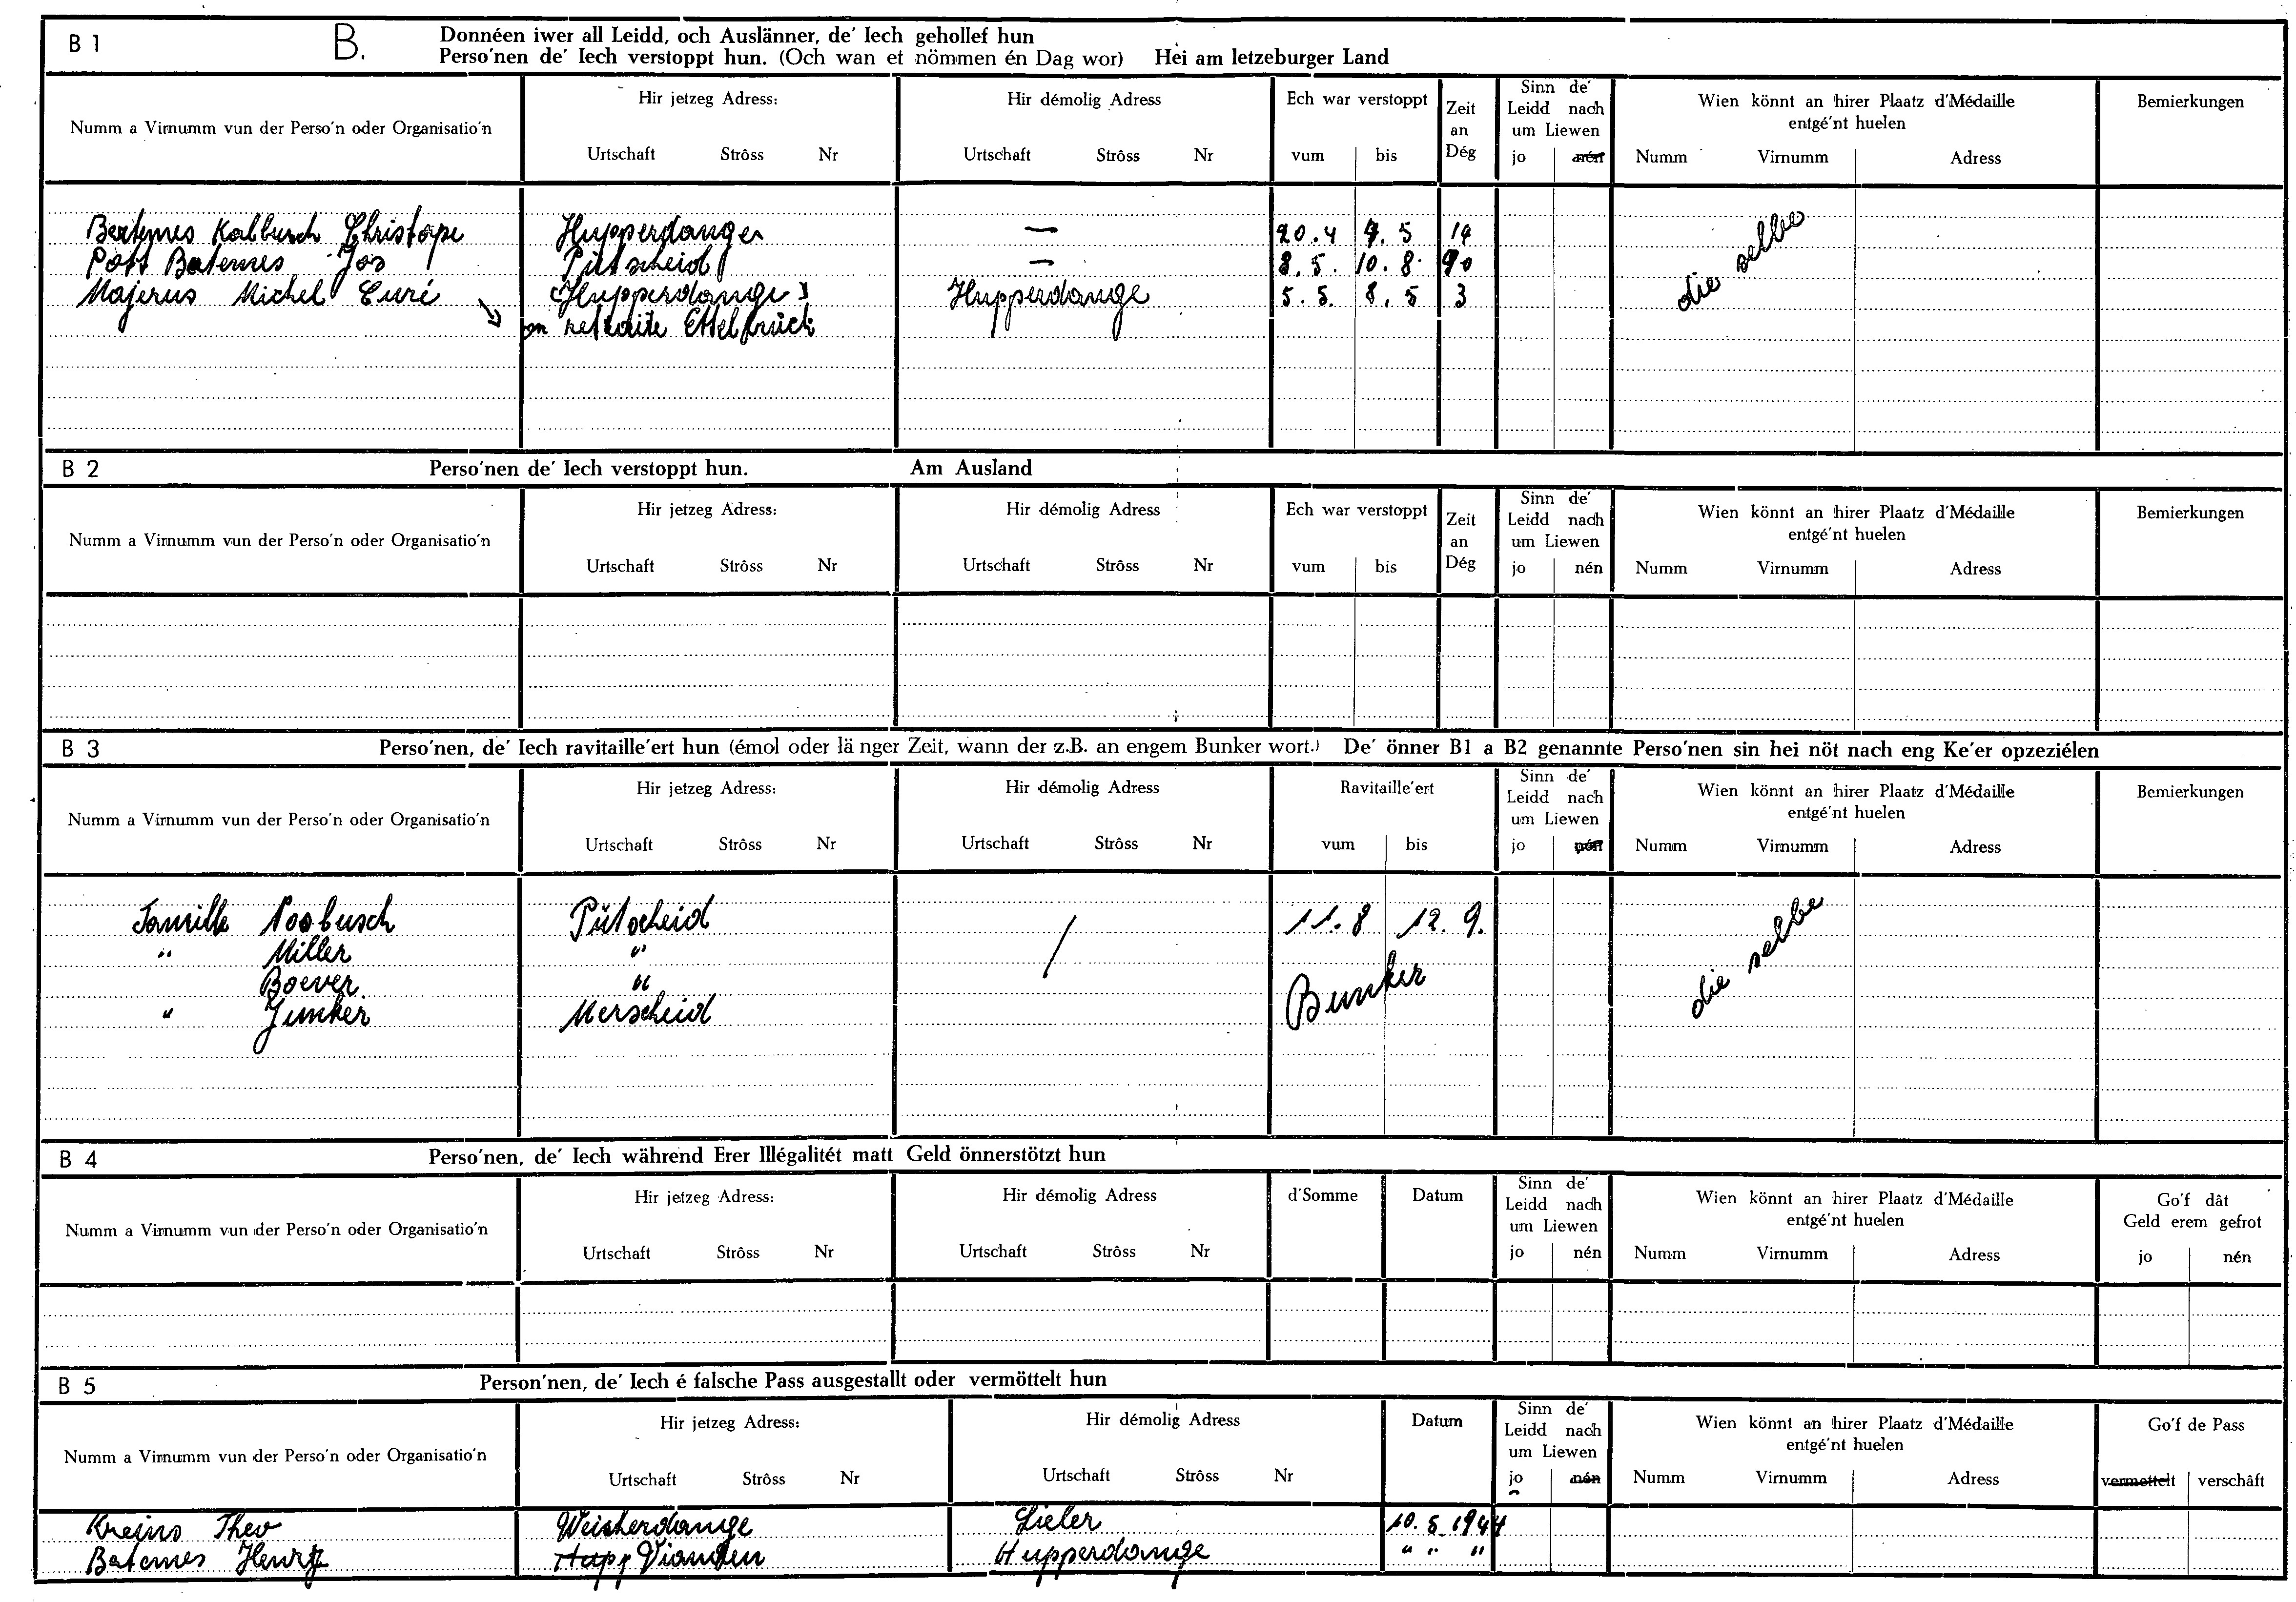 B 1 B. Donnéen iwer all Leidd, och Auslänner, de' Iech gehollef hun
Perso'nen de' Iech verstoppt hun. (Och wan et nömmen én Dag wor) Hei am letzeburger Land
Numm a Virnumm vun der Perso'n oder Organisatio'n
Hir jetzeg Adress:
Urtschaft Strôss Nr
Hir démolig Adress
Urtschaft Strôss Nr
Ech war verstoppt
vum bis
Zeit
an
Dég
Sinn de'
Leidd nach
um Liewen
jo nén
Wien könnt an hirer Plaatz d'Médaille
entgé'nt huelen
Numm Virnumm Adress
Bemierkungen
Bertemes Kalbusch Christophe Hupperdangen — 20.4 7.5 14
Post Bertemes Jos Pütscheid — 8.5. 10.8. 90
Majerus Michel Curé (Hupperdange) Hupperdange 5.5. 8.5 3
en retraite Ettelbrück
die selbe
B 2 Perso'nen de' Iech verstoppt hun. Am Ausland
Numm a Virnumm vun der Perso'n oder Organisatio'n
Hir jetzeg Adress:
Urtschaft Strôss Nr
Hir démolig Adress
Urtschaft Strôss Nr
Ech war verstoppt
vum bis
Zeit
an
Dég
Sinn de'
Leidd nach
um Liewen
jo nén
Wien könnt an hirer Plaatz d'Médaille
entgé'nt huelen
Numm Virnumm Adress
Bemierkungen
B 3 Perso'nen, de' Iech ravitaille'ert hun (émol oder länger Zeit, wann der z.B. an engem Bunker wort.) De' önner B1 a B2 genannte Perso'nen sin hei nöt nach eng Ke'er opzeziélen
Numm a Virnumm vun der Perso'n oder Organisatio'n
Hir jetzeg Adress:
Urtschaft Strôss Nr
Hir démolig Adress
Urtschaft Strôss Nr
Ravitaille'ert
vum bis
Sinn de'
Leidd nach
um Liewen
jo nén
Wien könnt an hirer Plaatz d'Médaille
entgé'nt huelen
Numm Virnumm Adress
Bemierkungen
Famille Nosbusch Pütscheid / 11.8 12.9.
" Miller "
Boever. "
" Junker Merscheid
Bunker
die selbe
B 4 Perso'nen, de' Iech während Erer Illégalitét matt Geld önnerstötzt hun
Numm a Virnumm vun der Perso'n oder Organisatio'n
Hir jetzeg Adress:
Urtschaft Strôss Nr
Hir démolig Adress
Urtschaft Strôss Nr
d'Somme
Datum
Sinn de'
Leidd nach
um Liewen
jo nén
Wien könnt an hirer Plaatz d'Médaille
entgé'nt huelen
Numm Virnumm Adress
Go'f dât
Geld erem gefrot
jo nén
B 5 Person'nen, de' Iech é falsche Pass ausgestallt oder vermöttelt hun
Numm a Virnumm vun der Perso'n oder Organisatio'n
Hir jetzeg Adress:
Urtschaft Strôss Nr
Hir démolig Adress
Urtschaft Strôss Nr
Datum
Sinn de'
Leidd nach
um Liewen
jo nén
Wien könnt an hirer Plaatz d'Médaille
entgé'nt huelen
Numm Virnumm Adress
Go'f de Pass
vermettelt verschâft
Kreins Theo Weicherdange Lieler 10.5.1944
Batemes Henri Hupp Vianden Hupperdange " " "